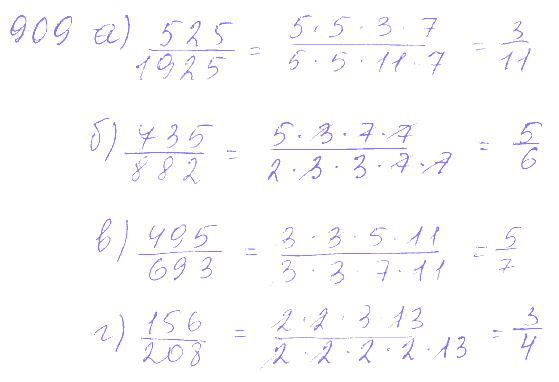 909 а) 525/1925 = 5·5·3·7/5·5·11·7 = 3/11
б) 735/882 = 5·3·7·7/2·3·3·7·7 = 5/6
в) 495/693 = 3·3·5·11/3·3·7·11 = 5/7
г) 156/208 = 2·2·3·13/2·2·2·2·13 = 3/4